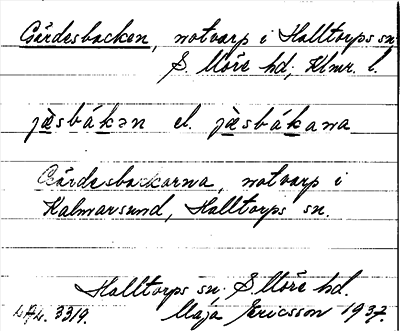 Gärdesbacken, notvarp i Halltorps sn
S. Möre hd; Klmr. l.
jæsbákən el. jæsbákana
Gärdesbackarna, notvarp i
Kalmarsund, Halltorps sn.
Halltorps sn. S. Möre hd.
LAL. 3319. Maja Ericsson 1937.